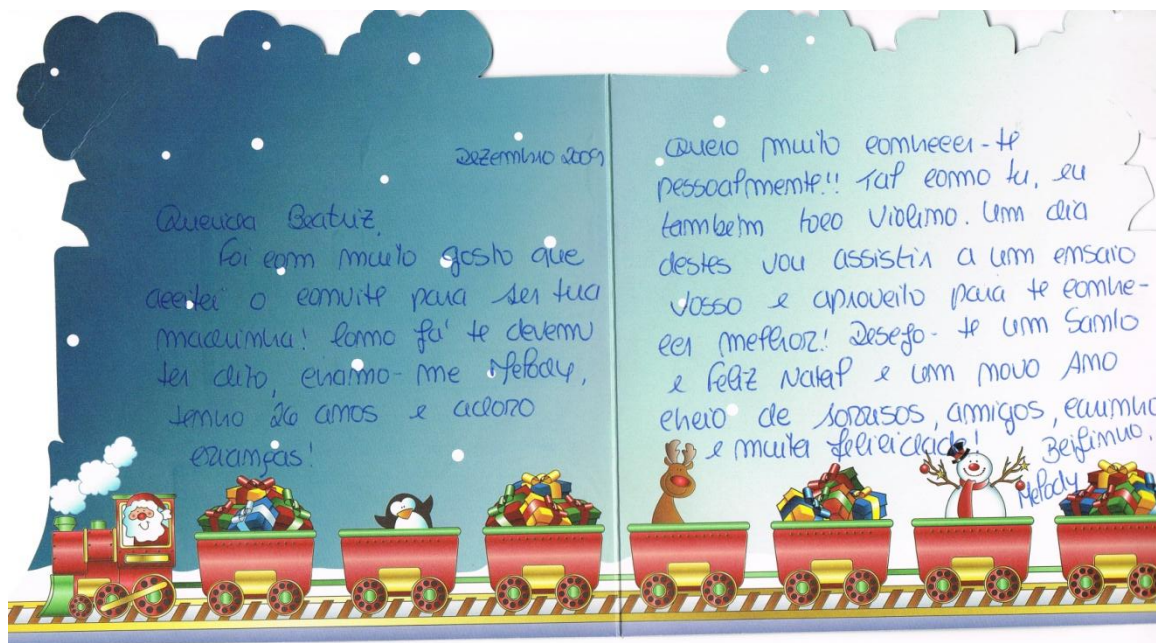 Dezembro 2009
Querida Beatriz,
Foi com muito gosto que
aceitei o convite para ser tua
madrinha! Como já te devem
ter dito, chamo-me Melody,
tenho 26 anos e adoro
crianças!
Quero muito conhecer-te
pessoalmente!! Tal como tu, eu
também toco violino. Um dia
destes vou assistir a um ensaio
vosso e aproveito para te conhe-
cer melhor! Desejo-te um Santo
e Feliz Natal e um novo Ano
cheio de sorrisos, amigos, carinho
e muita felicidade!
Beijinho,
Melody